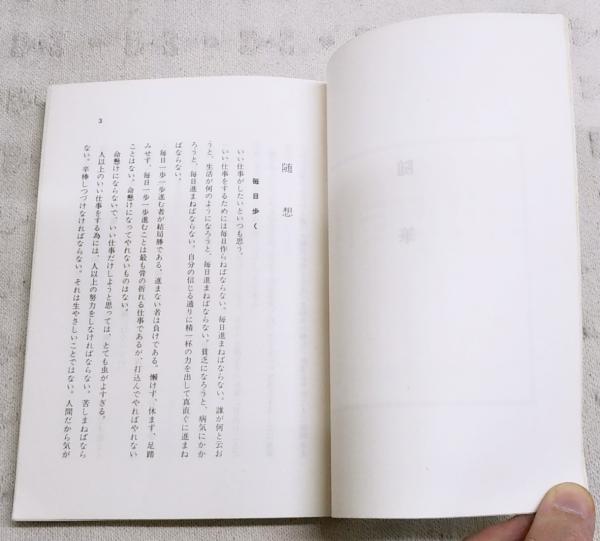 随想
毎日歩く
いい仕事がしたいといつも思う。
いい仕事をするためには毎日作らねばならない。毎日進まねばならない。誰が何と云お
うと、生活が何のようになろうと、毎日進まねばならない。貧乏になろうと、病気にかか
ろうと、毎日進まねばならない。自分の信じる通りに精一杯の力を出して真直ぐに進まね
ばならない。
毎日一歩一歩進む者が結局勝である。進まない者は負けである。懶けず、休まず、足踏
みせず、毎日一歩一歩進むことは最も骨の折れる仕事であるが、打込んでやればやれない
ことはない。命懸けになってやれないものはない。
命懸けにならないで、いい仕事だけしようと思っては、とても虫がよすぎる。
人以上のいい仕事をする為には、人以上の努力をしなければならない。苦しまねばなら
ない。辛棒しつづけなければならない。それは生やさしいことではない。人間だから気が
3
随筆